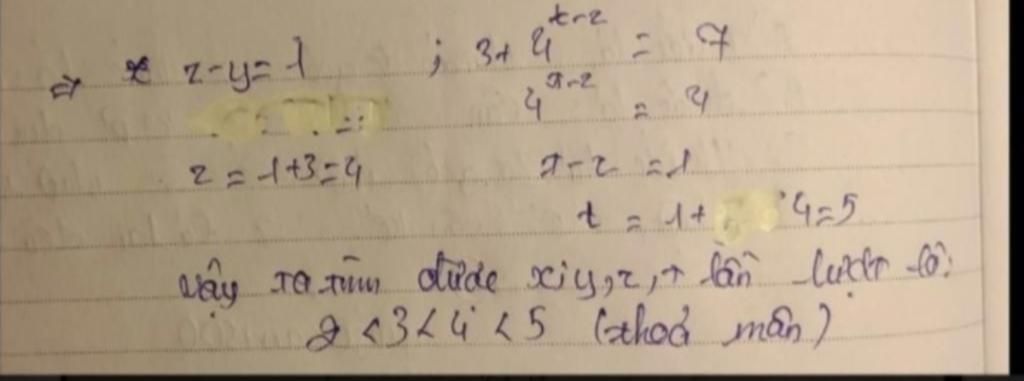 ⇒ z-y=1 ; 3+4^{t-z} = 7
4^{t-z} = 4
z = 1+3=4 t-z =1
t = 1+ 4=5
vậy ta tìm được x,y,z,t lần lượt là:
2 <3<4<5 (thoả mãn)